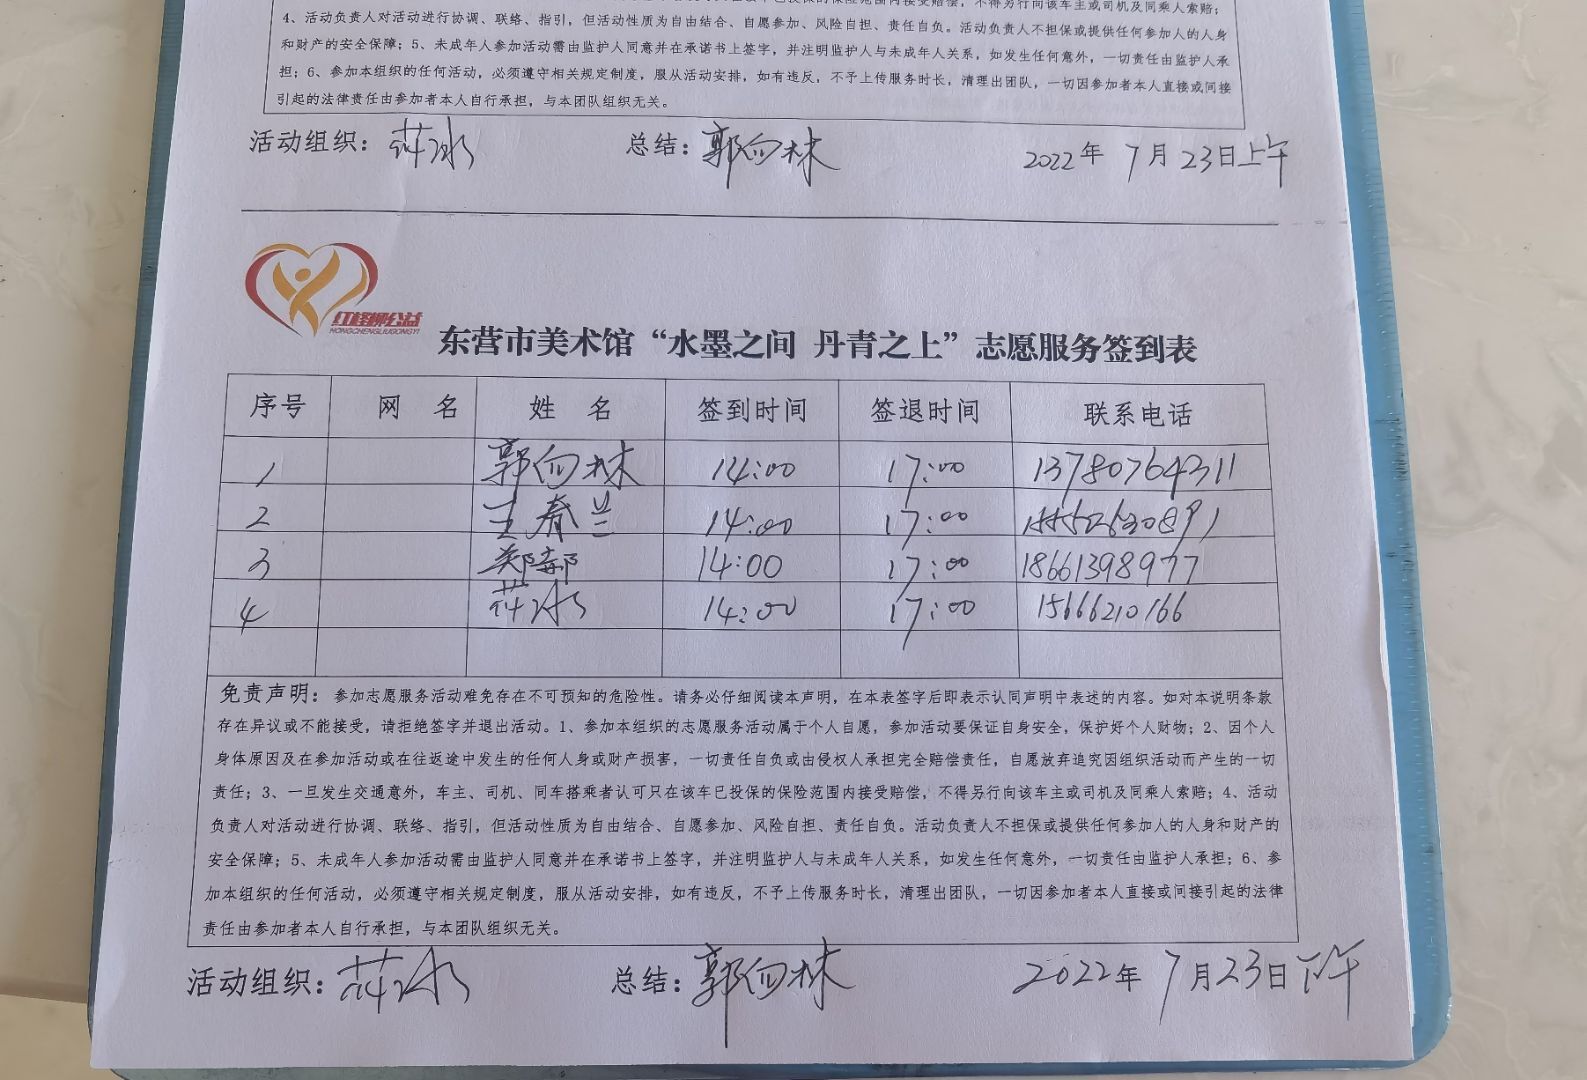 4、活动负责人对活动进行协调、联络、指引，但活动性质为自由结合、自愿参加、风险自担、责任自负。活动负责人不担保或提供任何参加人的人身
和财产的安全保障；5、未成年人参加活动需由监护人同意并在承诺书上签字，并注明监护人与未成年人关系，如发生任何意外，一切责任由监护人承
担；6、参加本组织的任何活动，必须遵守相关规定制度，服从活动安排，如有违反，不予上传服务时长，清理出团队，一切因参加者本人直接或间接
引起的法律责任由参加者本人自行承担，与本团队组织无关。
活动组织： 总结：郭向林 2022年 7月23日上午
红柽柳公益
HONGCHENGLIUGONGYI
东营市美术馆“水墨之间 丹青之上”志愿服务签到表
序号 网 名 姓 名 签到时间 签退时间 联系电话
1 郭向林 14:00 17:00 13780764311
2 王春兰 14:00 17:00
3 14:00 17:00 18661398977
4 14:00 17:00 15666210166
免责声明：参加志愿服务活动难免存在不可预知的危险性。请务必仔细阅读本声明，在本表签字后即表示认同声明中表述的内容。如对本说明条款
存在异议或不能接受，请拒绝签字并退出活动。1、参加本组织的志愿服务活动属于个人自愿，参加活动要保证自身安全，保护好个人财物；2、因个人
身体原因及在参加活动或在往返途中发生的任何人身或财产损害，一切责任自负或由侵权人承担完全赔偿责任，自愿放弃追究因组织活动而产生的一切
责任；3、一旦发生交通意外，车主、司机、同车搭乘者认可只在该车已投保的保险范围内接受赔偿，不得另行向该车主或司机及同乘人索赔；4、活动
负责人对活动进行协调、联络、指引，但活动性质为自由结合、自愿参加、风险自担、责任自负。活动负责人不担保或提供任何参加人的人身和财产的
安全保障；5、未成年人参加活动需由监护人同意并在承诺书上签字，并注明监护人与未成年人关系，如发生任何意外，一切责任由监护人承担；6、参
加本组织的任何活动，必须遵守相关规定制度，服从活动安排，如有违反，不予上传服务时长，清理出团队，一切因参加者本人直接或间接引起的法律
责任由参加者本人自行承担，与本团队组织无关。
活动组织： 总结：郭向林 2022年 7月23日下午